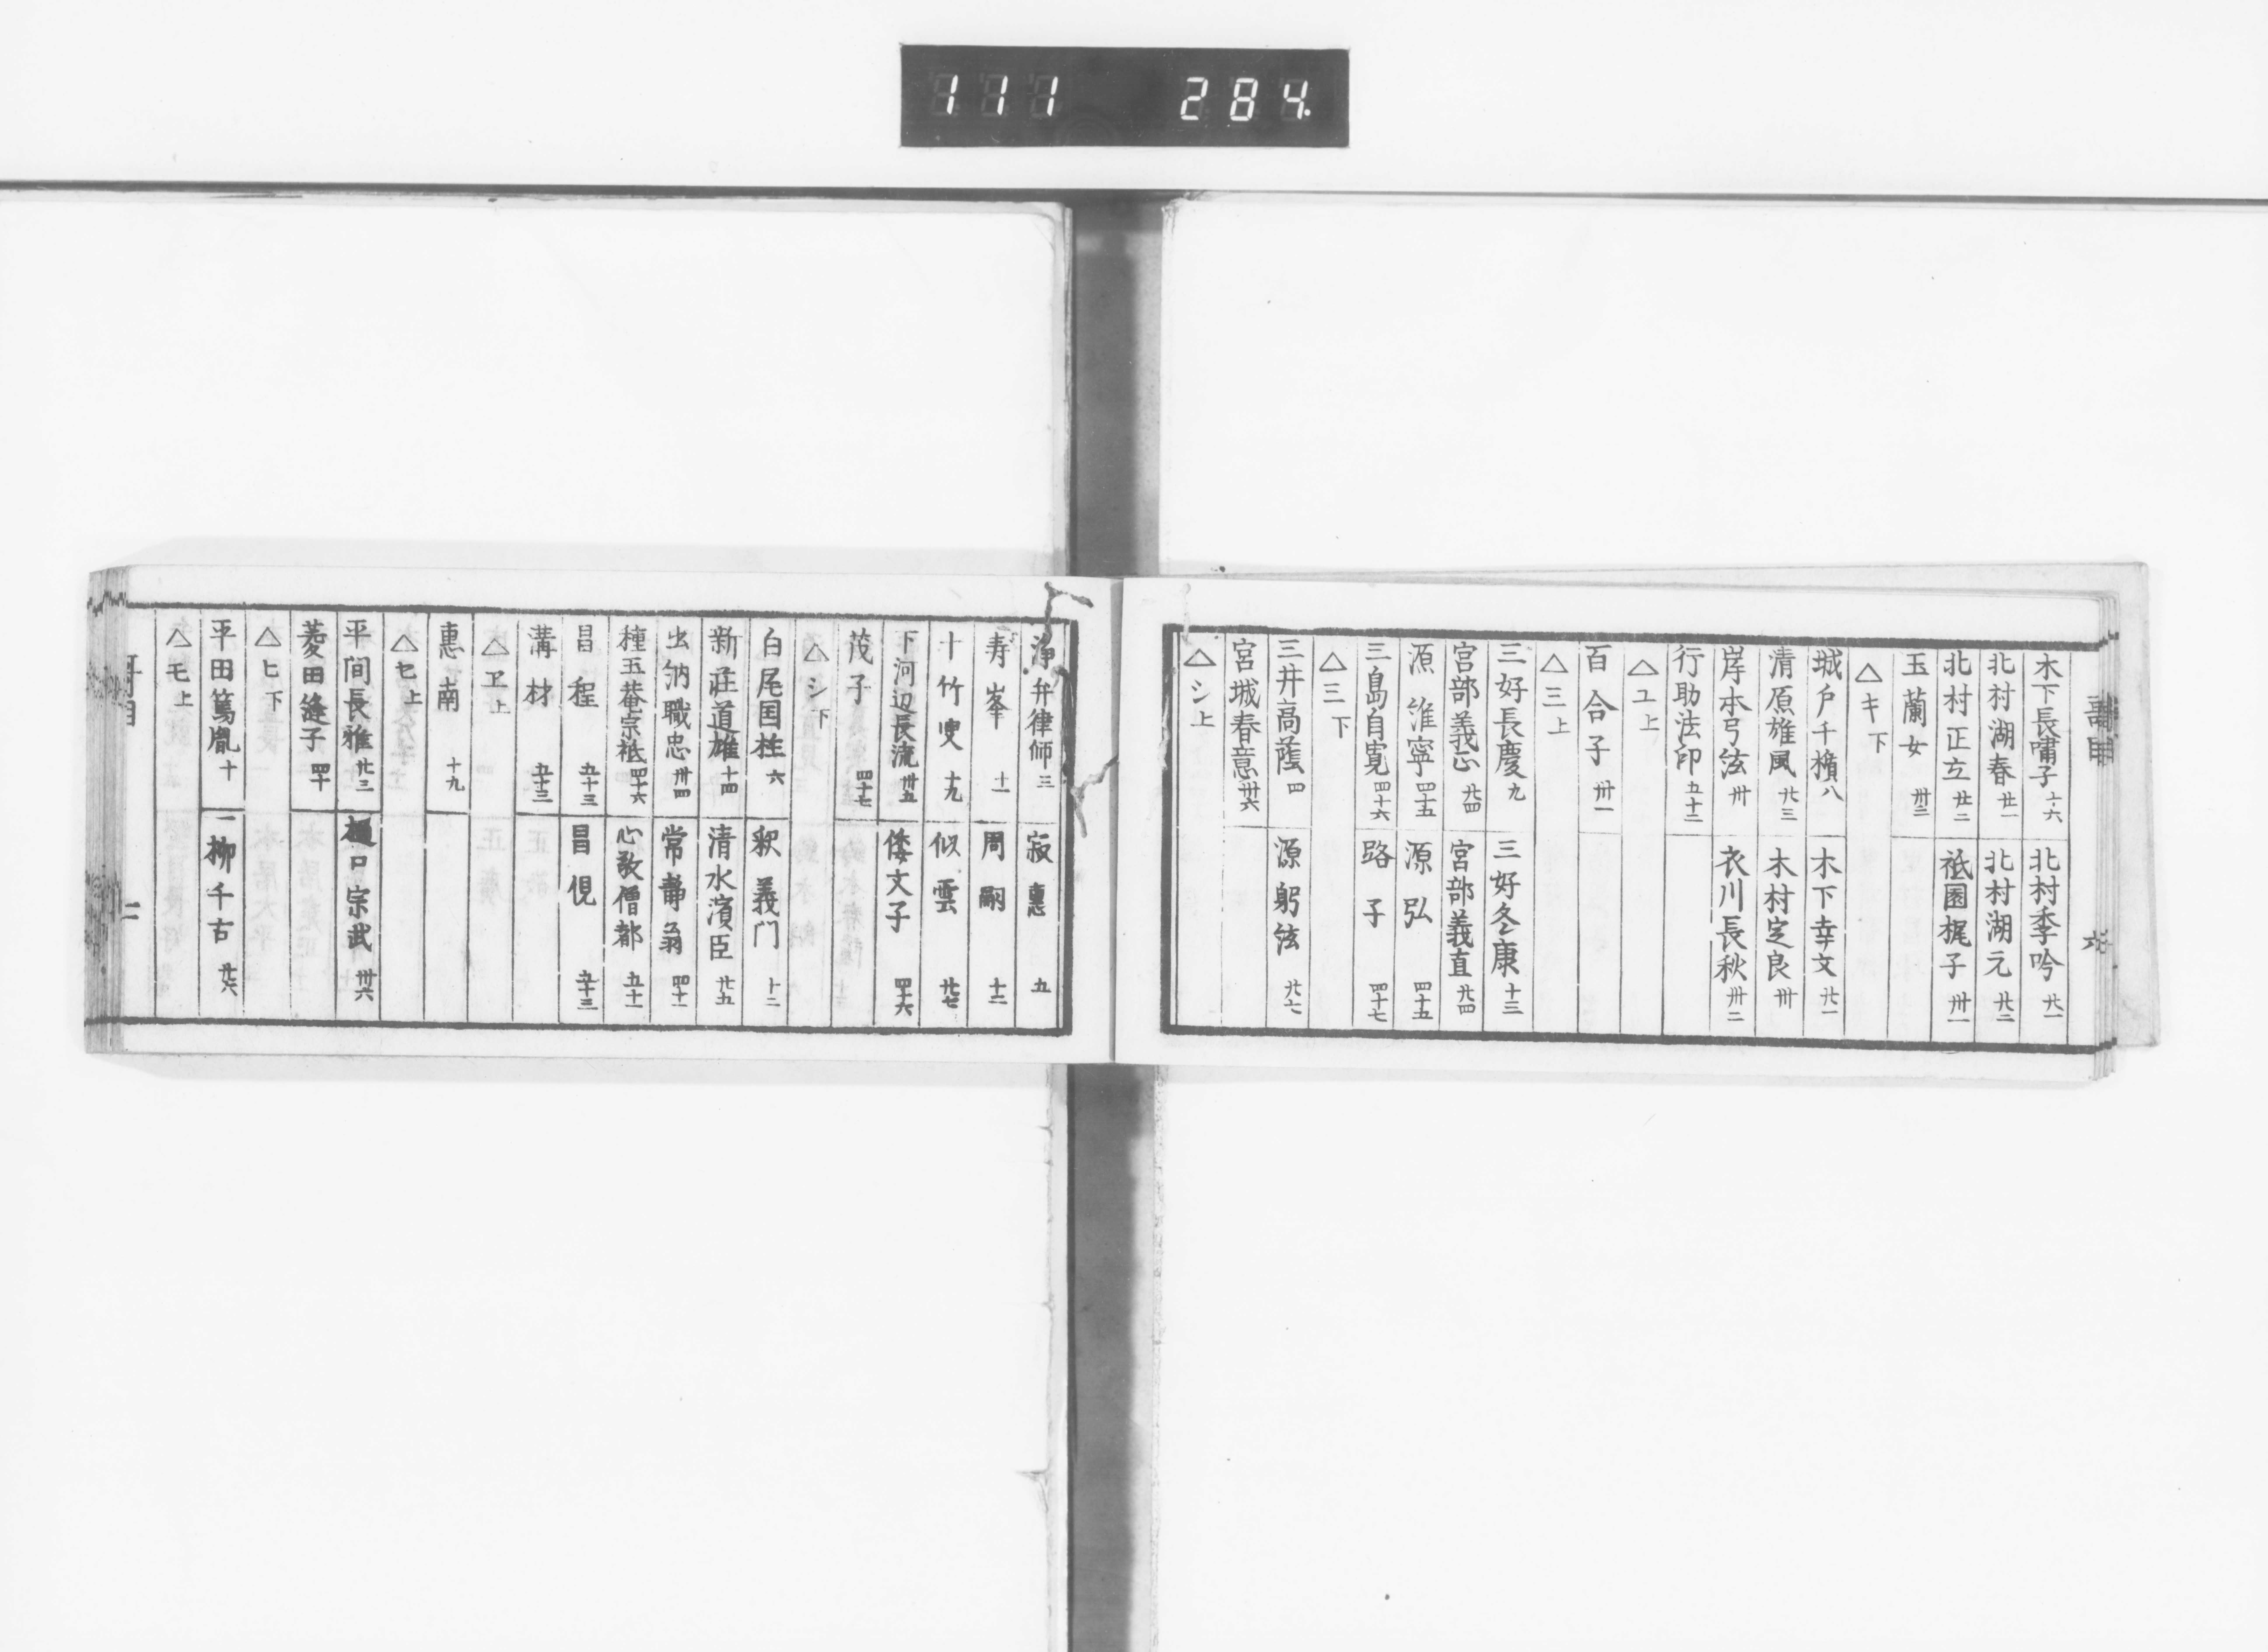 111 284
木下長嘯子 十六 北村季吟 廿一
北村湖春 廿一 北村湖元 廿二
北村正立 廿二 祇園梶子 卅一
玉蘭女 卅二
△キ下
城戸千楯 八 木下幸文 廿一
清原雄風 廿三 木村定良 卅
岸本弓弦 卅 衣川長秋 卅二
行助法印 五十二
△ユ上
百合子 卅一
△三上
三好長慶 九 三好冬康 十三
宮部義正 廿四 宮部義直 廿四
源維寧 四十五 源弘 四十五
三島自寛 四十六 路子 四十七
△三下
三井高蔭 四 源躬弦 廿七
宮城春意 卅六
△シ上
浄弁律師 三 寂惠 九
寿峯 十一 周嗣 十二
十竹叟 十九 似雲 廿七
下河辺長流 卅五 倭文子 四十六
茂子 四十七
△シ下
白尾国柱 六 釈義门 十二
新荘道雄 十四 清水濱臣 廿五
出納職忠 卅四 常静翁 四十一
種玉菴宗祇 四十六 心敬僧都 五十一
昌程 五十三 昌俔 五十三
溝材 五十三
△ヱ上
惠南 十九
△セ上
平间長雅 廿三 樋口宗武 卅六
菱田縫子 四十
△ヒ下
平田篤胤 十 一柳千古 廿六
△モ上
二